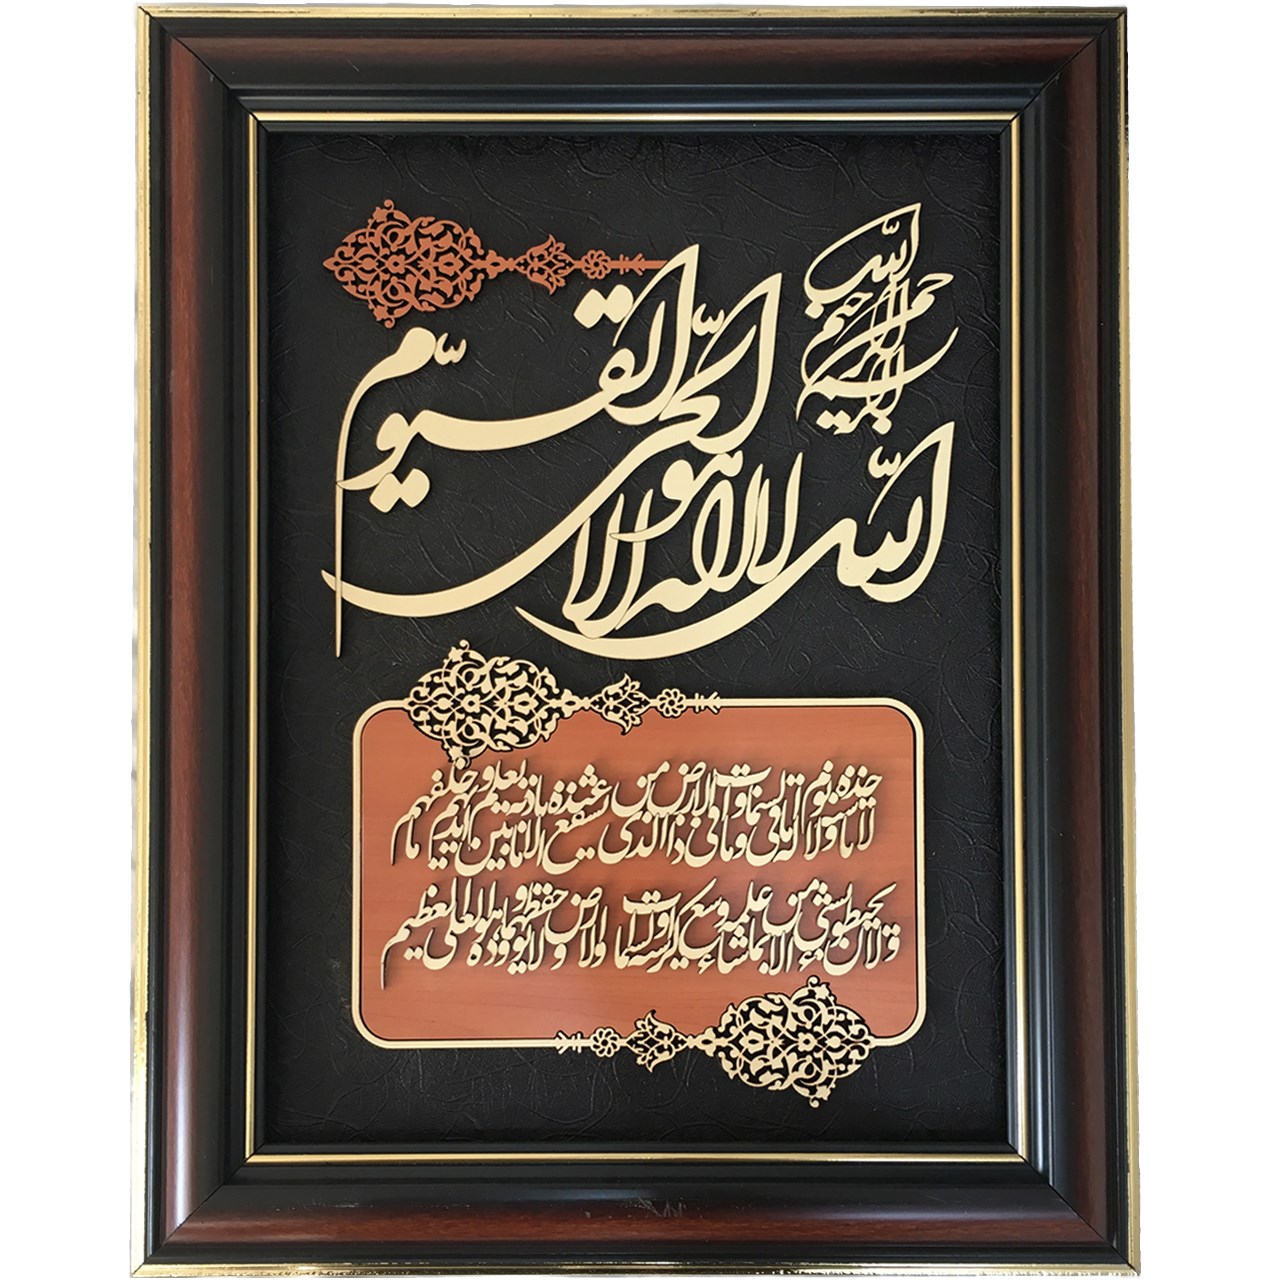 بسم الله الرحمن الرحیم
الله لا اله الا هو الحی القیوم
لا تاخذه سنة ولا نوم له ما فی السماوات وما فی الارض من ذا الذی یشفع عنده الا باذنه یعلم ما بین ایدیهم و ما خلفهم
ولا یحیطون بشیء من علمه الا بما شاء وسع کرسیه السماوات والارض ولا یؤوده حفظهما وهو العلی العظیم